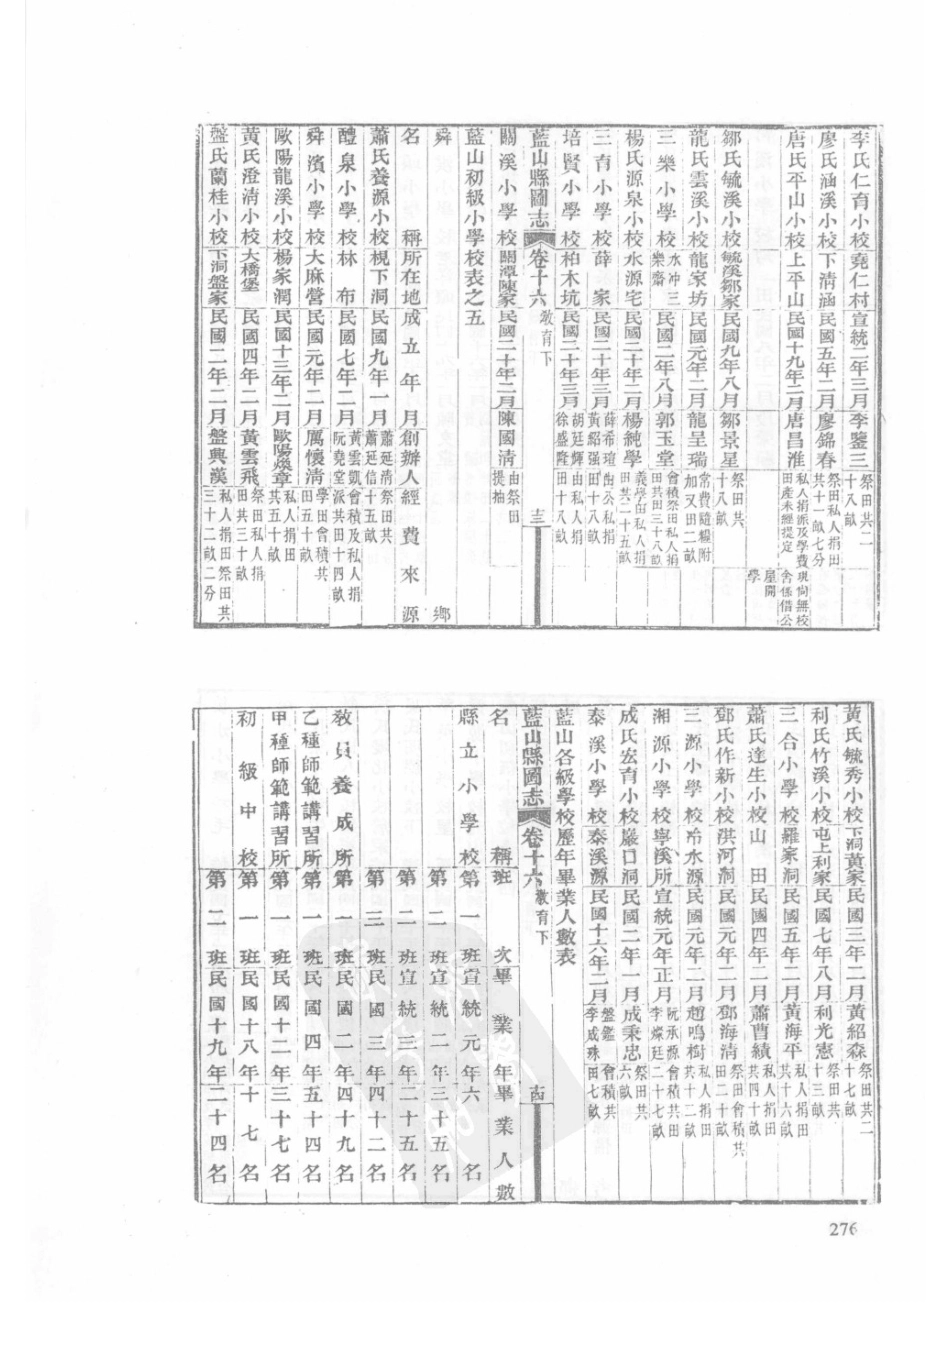 李氏仁育小校堯仁村宣統二年三月李鑒三祭田共二十八畝
廖氏涵溪小校下清涵民國五年二月廖錦春祭田私人捐田共十一畝七分
唐氏平山小校上平山民國十九年二月唐昌淮私人捐派及學費田產未經提定現尚無校舍係借公屋開學
鄒氏毓溪小校毓溪鄒家民國九年八月鄒景星祭田共十八畝
龍氏雲溪小校龍家坊民國元年二月龍呈瑞常費隨糧附加又田二畝
三樂小學校水冲三樂齋民國二年八月郭玉堂會積祭田私人捐田共田三十八畝
楊氏源泉小校水源宅民國二十年二月楊純學義學田私人捐田共二十五畝
三育小學校薛家民國二十年三月薛希瑄黃紹强由公私捐田十八畝
培賢小學校柏木坑民國二十年三月胡廷輝徐盛隆由私人捐田十八畝
藍山縣圖志卷十六教育下 十三
關溪小學校關潭陳家民國二十年二月陳國清由祭田提抽
藍山初級小學校表之五
舜鄉
名稱所在地成立年月創辦人經費來源
蕭氏養源小校梘下洞民國九年一月蕭延清蕭延信祭田共十五畝
醴泉小學校林布民國七年二月黃雲凱阮堯堂會積及私人捐派共田十四畝
舜濱小學校大麻營民國元年二月厲懷清學田會積共田五十畝
歐陽龍溪小校楊家澗民國十三年二月歐陽煥章私人捐田共五十畝
黃氏澄清小校大橋堡民國四年二月黃雲飛祭田私人捐田共三十畝
盤氏蘭桂小校下洞盤家民國二年二月盤興漢私人捐田祭田共三十二畝二分
黃氏毓秀小校下洞黃家民國三年二月黃紹森祭田共二十七畝
利氏竹溪小校屯上利家民國七年八月利光憲祭田共十三畝
三合小學校羅家洞民國五年二月黃海平私人捐田共十六畝
蕭氏達生小校山田民國四年二月蕭曹績私人捐田共四十畝
鄧氏作新小校洪河洞民國元年二月鄧海清祭田會積共田二十畝
三源小學校冷水源民國元年二月趙鳴樹私人捐田共十二畝
湘源小學校寧溪所宣統元年正月阮承源李燦廷會積共田二十七畝
成氏宏育小校巖口洞民國二年一月成秉忠祭田共六畝
泰溪小學校泰溪源民國十六年二月盤鑑李成珠會積共田七畝
藍山各級學校歷年畢業人數表
藍山縣圖志卷十六教育下 十四
名稱班次畢業年畢業人數
縣立小學校第一班宣統元年六名
第二班宣統二年三十五名
第二班宣統三年二十五名
第三班民國三年四十二名
教員養成所第一班民國二年四十九名
乙種師範講習所第一班民國四年五十四名
甲種師範講習所第一班民國十二年三十七名
初級中校第一班民國十八年十七名
第二班民國十九年二十四名
276